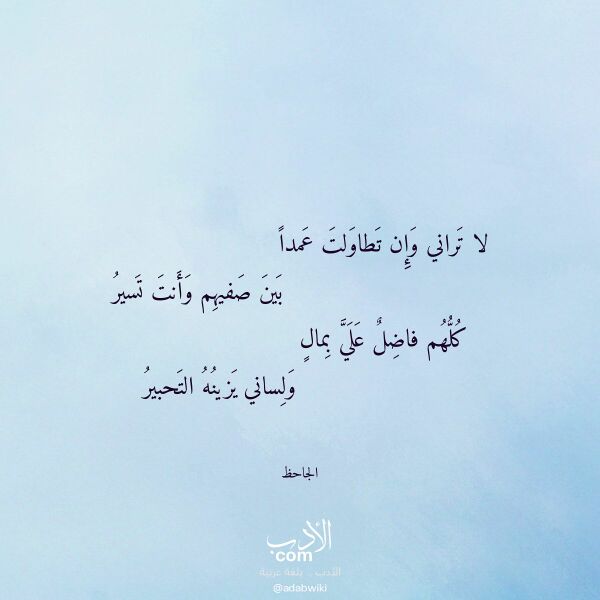 لا تَراني وَإِن تَطاوَلتَ عَمداً
بَينَ صَفيهِم وَأَنتَ تَسيرُ
كُلُّهُم فاضِلٌ عَلَيَّ بِمالٍ
وَلِساني يَزينُهُ التَحبيرُ
الجاحظ
الأدب
com
الأدب .. بلغة عربية
@adabwiki